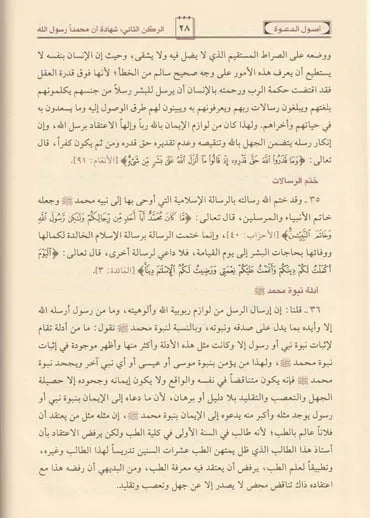 أصول الدعوة
٢٨
الركن الثاني: شهادة أن محمداً رسول الله
ووضعه على الصراط المستقيم الذي لا يضل فيه ولا يشقى، وحيث إن الإنسان بنفسه لا
يستطيع أن يعرف هذه الأمور على وجه صحيح سالم من الخطأ؛ لأنها فوق قدرة العقل
فقد اقتضت حكمة الرب ورحمته بالإنسان أن يرسل للبشر رسلاً من جنسهم يكلمونهم
بلغتهم ويبلغون رسالات ربهم ويعرفونهم به ويبينون لهم طرق الوصول إليه وما يسعدون به
في حياتهم وأخراهم. ولهذا كان من لوازم الإيمان بالله رباً وإلهاً الاعتقاد برسل الله، وإن
إنكار رسله يتضمن الجهل بالله وتنقيصه وعدم تقديره حق قدره ومن ثم يكون كفراً، قال
تعالى: ﴿وَمَا قَدَرُوا اللَّهَ حَقَّ قَدْرِهِ إِذْ قَالُوا مَا أَنزَلَ اللَّهُ عَلَىٰ بَشَرٍ مِّن شَيْءٍ﴾ [الأنعام: ٩١].
ختم الرسالات
٣٥ ـ وقد ختم الله رسالته بالرسالة الإسلامية التي أوحى بها إلى نبيه محمد ﷺ وجعله
خاتم الأنبياء والمرسلين، قال تعالى: ﴿مَّا كَانَ مُحَمَّدٌ أَبَا أَحَدٍ مِّن رِّجَالِكُمْ وَلَٰكِن رَّسُولَ اللَّهِ
وَخَاتَمَ النَّبِيِّينَ﴾ [الأحزاب: ٤٠]، وإنما ختمت الرسالة برسالة الإسلام الخالدة لكمالها
ووفائها بحاجات البشر إلى يوم القيامة، فلا داعي لرسالة أخرى، قال تعالى: ﴿الْيَوْمَ
أَكْمَلْتُ لَكُمْ دِينَكُمْ وَأَتْمَمْتُ عَلَيْكُمْ نِعْمَتِي وَرَضِيتُ لَكُمُ الْإِسْلَامَ دِينًا﴾ [المائدة: ٣].
أدلة نبوة محمد ﷺ
٣٦ ـ قلنا: إن إرسال الرسل من لوازم ربوبية الله وألوهيته، وما من رسول أرسله الله
إلا وأيده بما يدل على صدقه ونبوته، وبالنسبة لنبوة محمد ﷺ نقول: ما من أدلة تقام
لإثبات نبوة نبي أو رسول إلا وكانت مثل هذه الأدلة وأكثر منها وأظهر موجودة في إثبات
نبوة محمد ﷺ، ولهذا من يؤمن بنبوة موسى أو عيسى أو أي نبي آخر ويجحد نبوة
محمد ﷺ فإنه يكون متناقضاً في نفسه والواقع ولا يكون إيمانه وجحوده إلا حصيلة
الجهل والتعصب والتقليد بلا دليل أو برهان، لأن ما دعاه إلى الإيمان بنبوة نبي أو
رسول يوجد مثله وأكبر منه يدعوه إلى الإيمان بنبوة محمد ﷺ، إن مثله مثل من يعتقد أن
فلاناً عالم بالطب؛ لأنه طالب في السنة الأولى في كلية الطب ولكن يرفض الاعتقاد بأن
أستاذ هذا الطالب الذي ظل يمتهن الطب عشرات السنين تدريساً لهذا الطالب وغيره،
وتطبيقاً لعلم الطب، يرفض أن يعتقد فيه معرفة الطب، ومن البديهي أن رفضه هذا مع
اعتقاده ذاك تناقض محض لا يصدر إلا عن جهل وتعصب وتقليد.